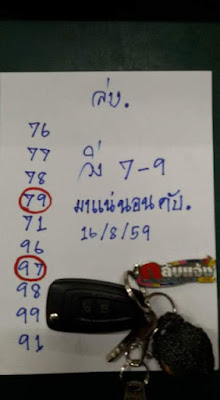 ล่าง.
76
77
78
79
71
96
97
98
99
91
วิ่ง 7-9
มาแน่นอนคับ.
16/8/59